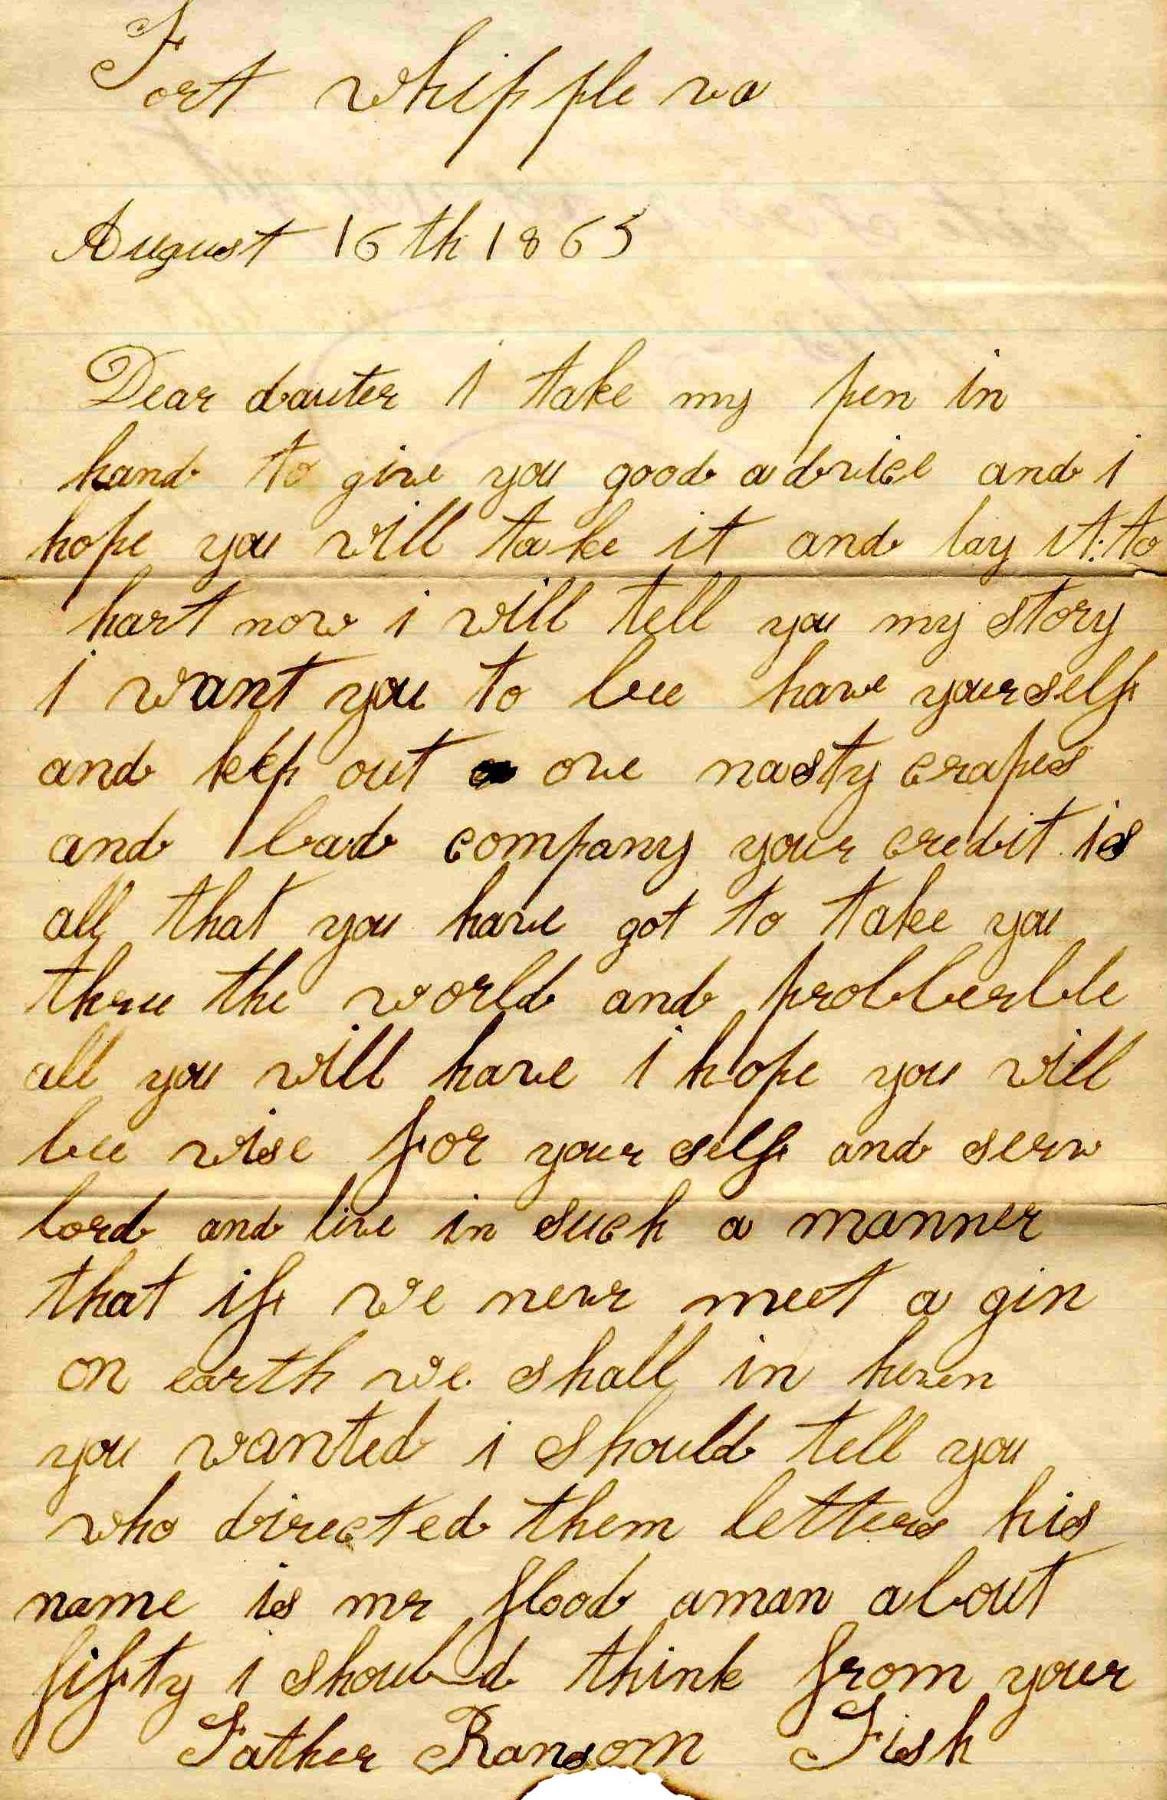 Fort whipple va
August 16th 1863
Dear dauter i take my pen in
hand to give you good advice and i
hope you will take it and lay it to
hart now i will tell you my story
i want you to bee have yourself
and kep out one nasty crapes
and bad company your credit is
all that you have got to take you
threu the world and probberble
all you will have i hope you will
bee wise for your self and serv
lord and live in such a manner
that if we never meet a gin
on earth we shall in heven
you wanted i should tell you
who directed them letters his
name is mr flood aman about
fifty i should think from your
Father Ransom Fish